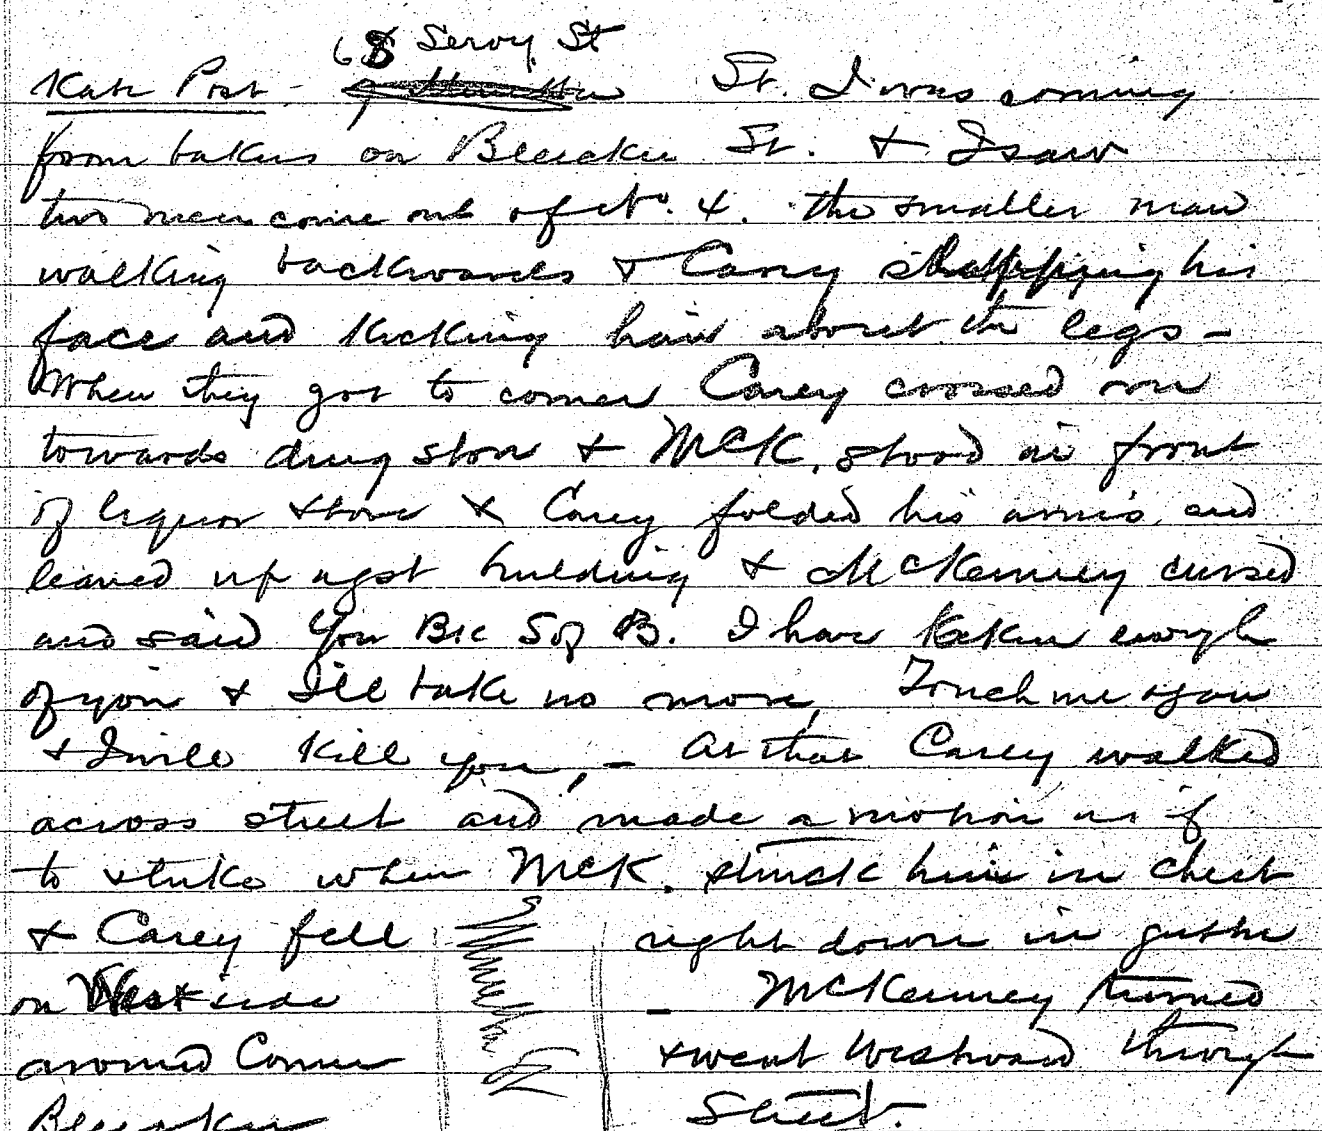 68 Leroy St
Kate Post - St. I was coming
from bakers on Bleecker St. & I saw
two men come out of No. 4. the smaller man
walking backwards & Carey slapping his
face and kicking him about the legs -
When they got to corner Carey crossed over
towards drug store & McK. stood in front
of liquor store & Carey folded his arms and
leaned up agst building & McKenney cursed
and said You Bic S of B. I have taken enough
of you & I'll take no more, Touch me again
& I will kill you, - At that Carey walked
across street and made a motion as if
to strike when McK. struck him in chest
& Carey fell right down in gutter
on West side - McKenney turned
around Corner & went Westward through
Bleecker Street.